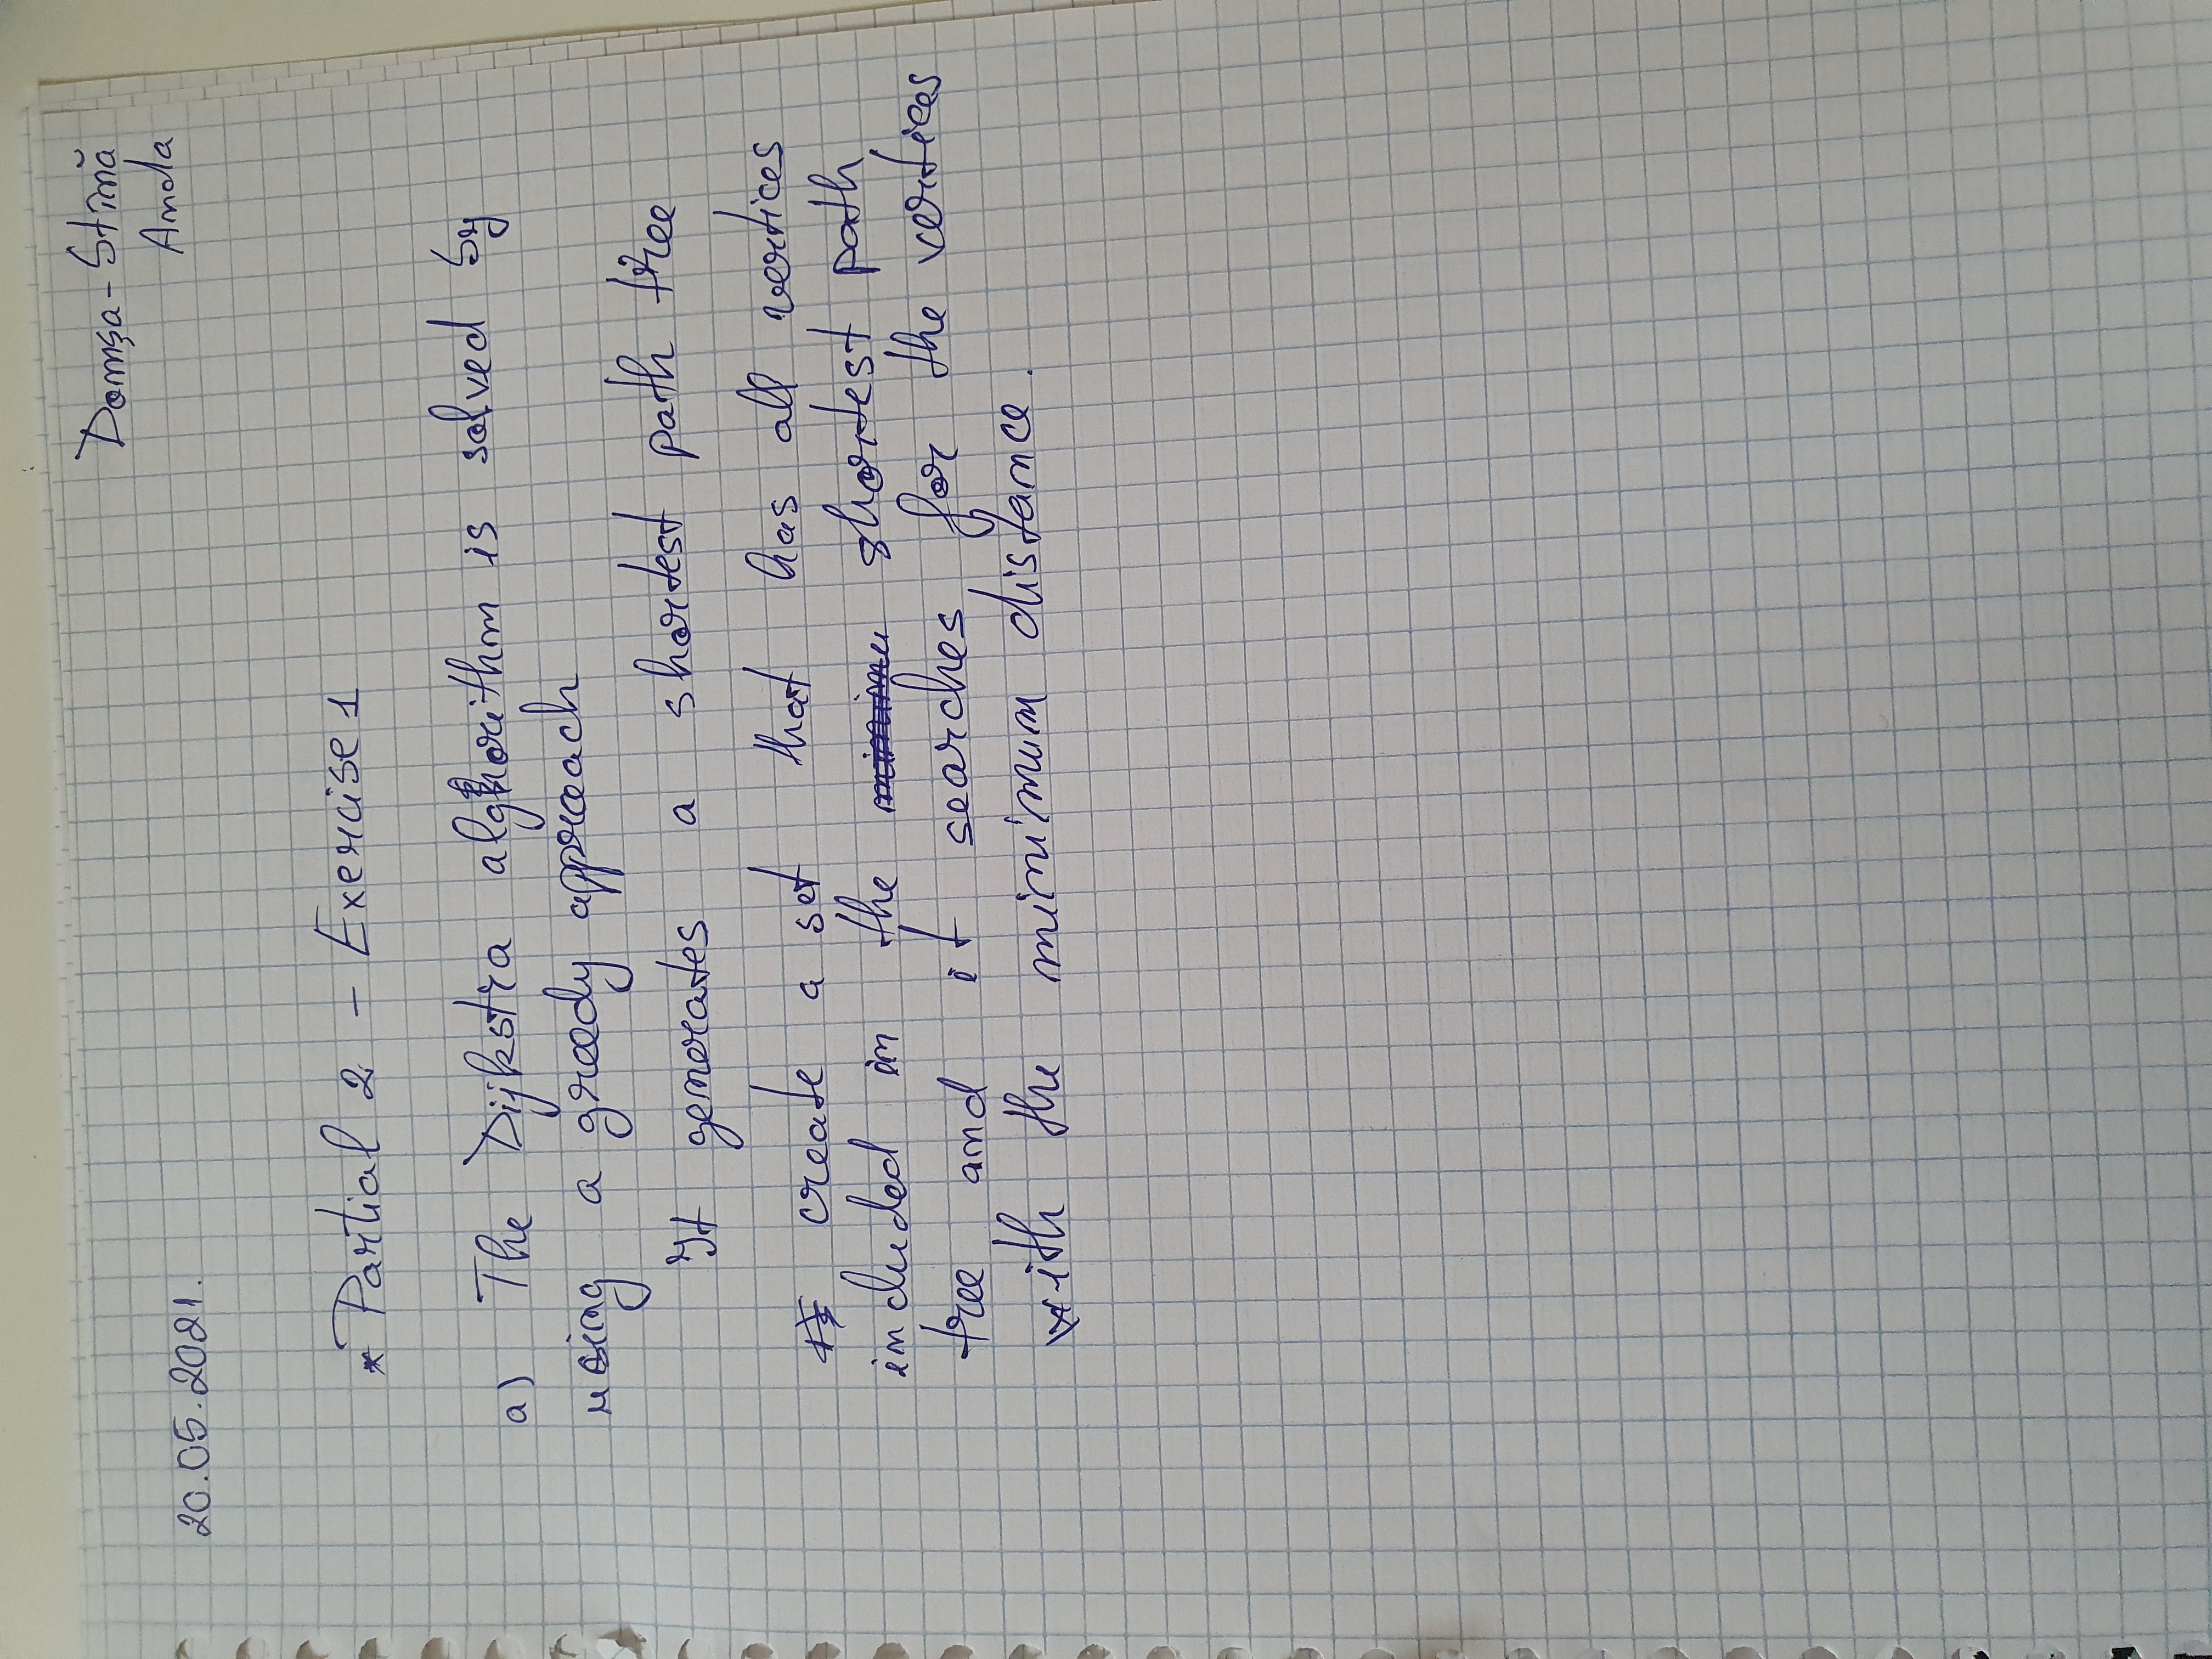 Domșa-Stînă
Anda
20.05.2021.
* Partial 2 - Exercise 1
a) The Dijkstra alghorithm is solved by
using a greedy approach
It generates a shortest path tree
create a set that has all vertices
included in the shortest path
tree and it searches for the vertices
with the minimum distance.